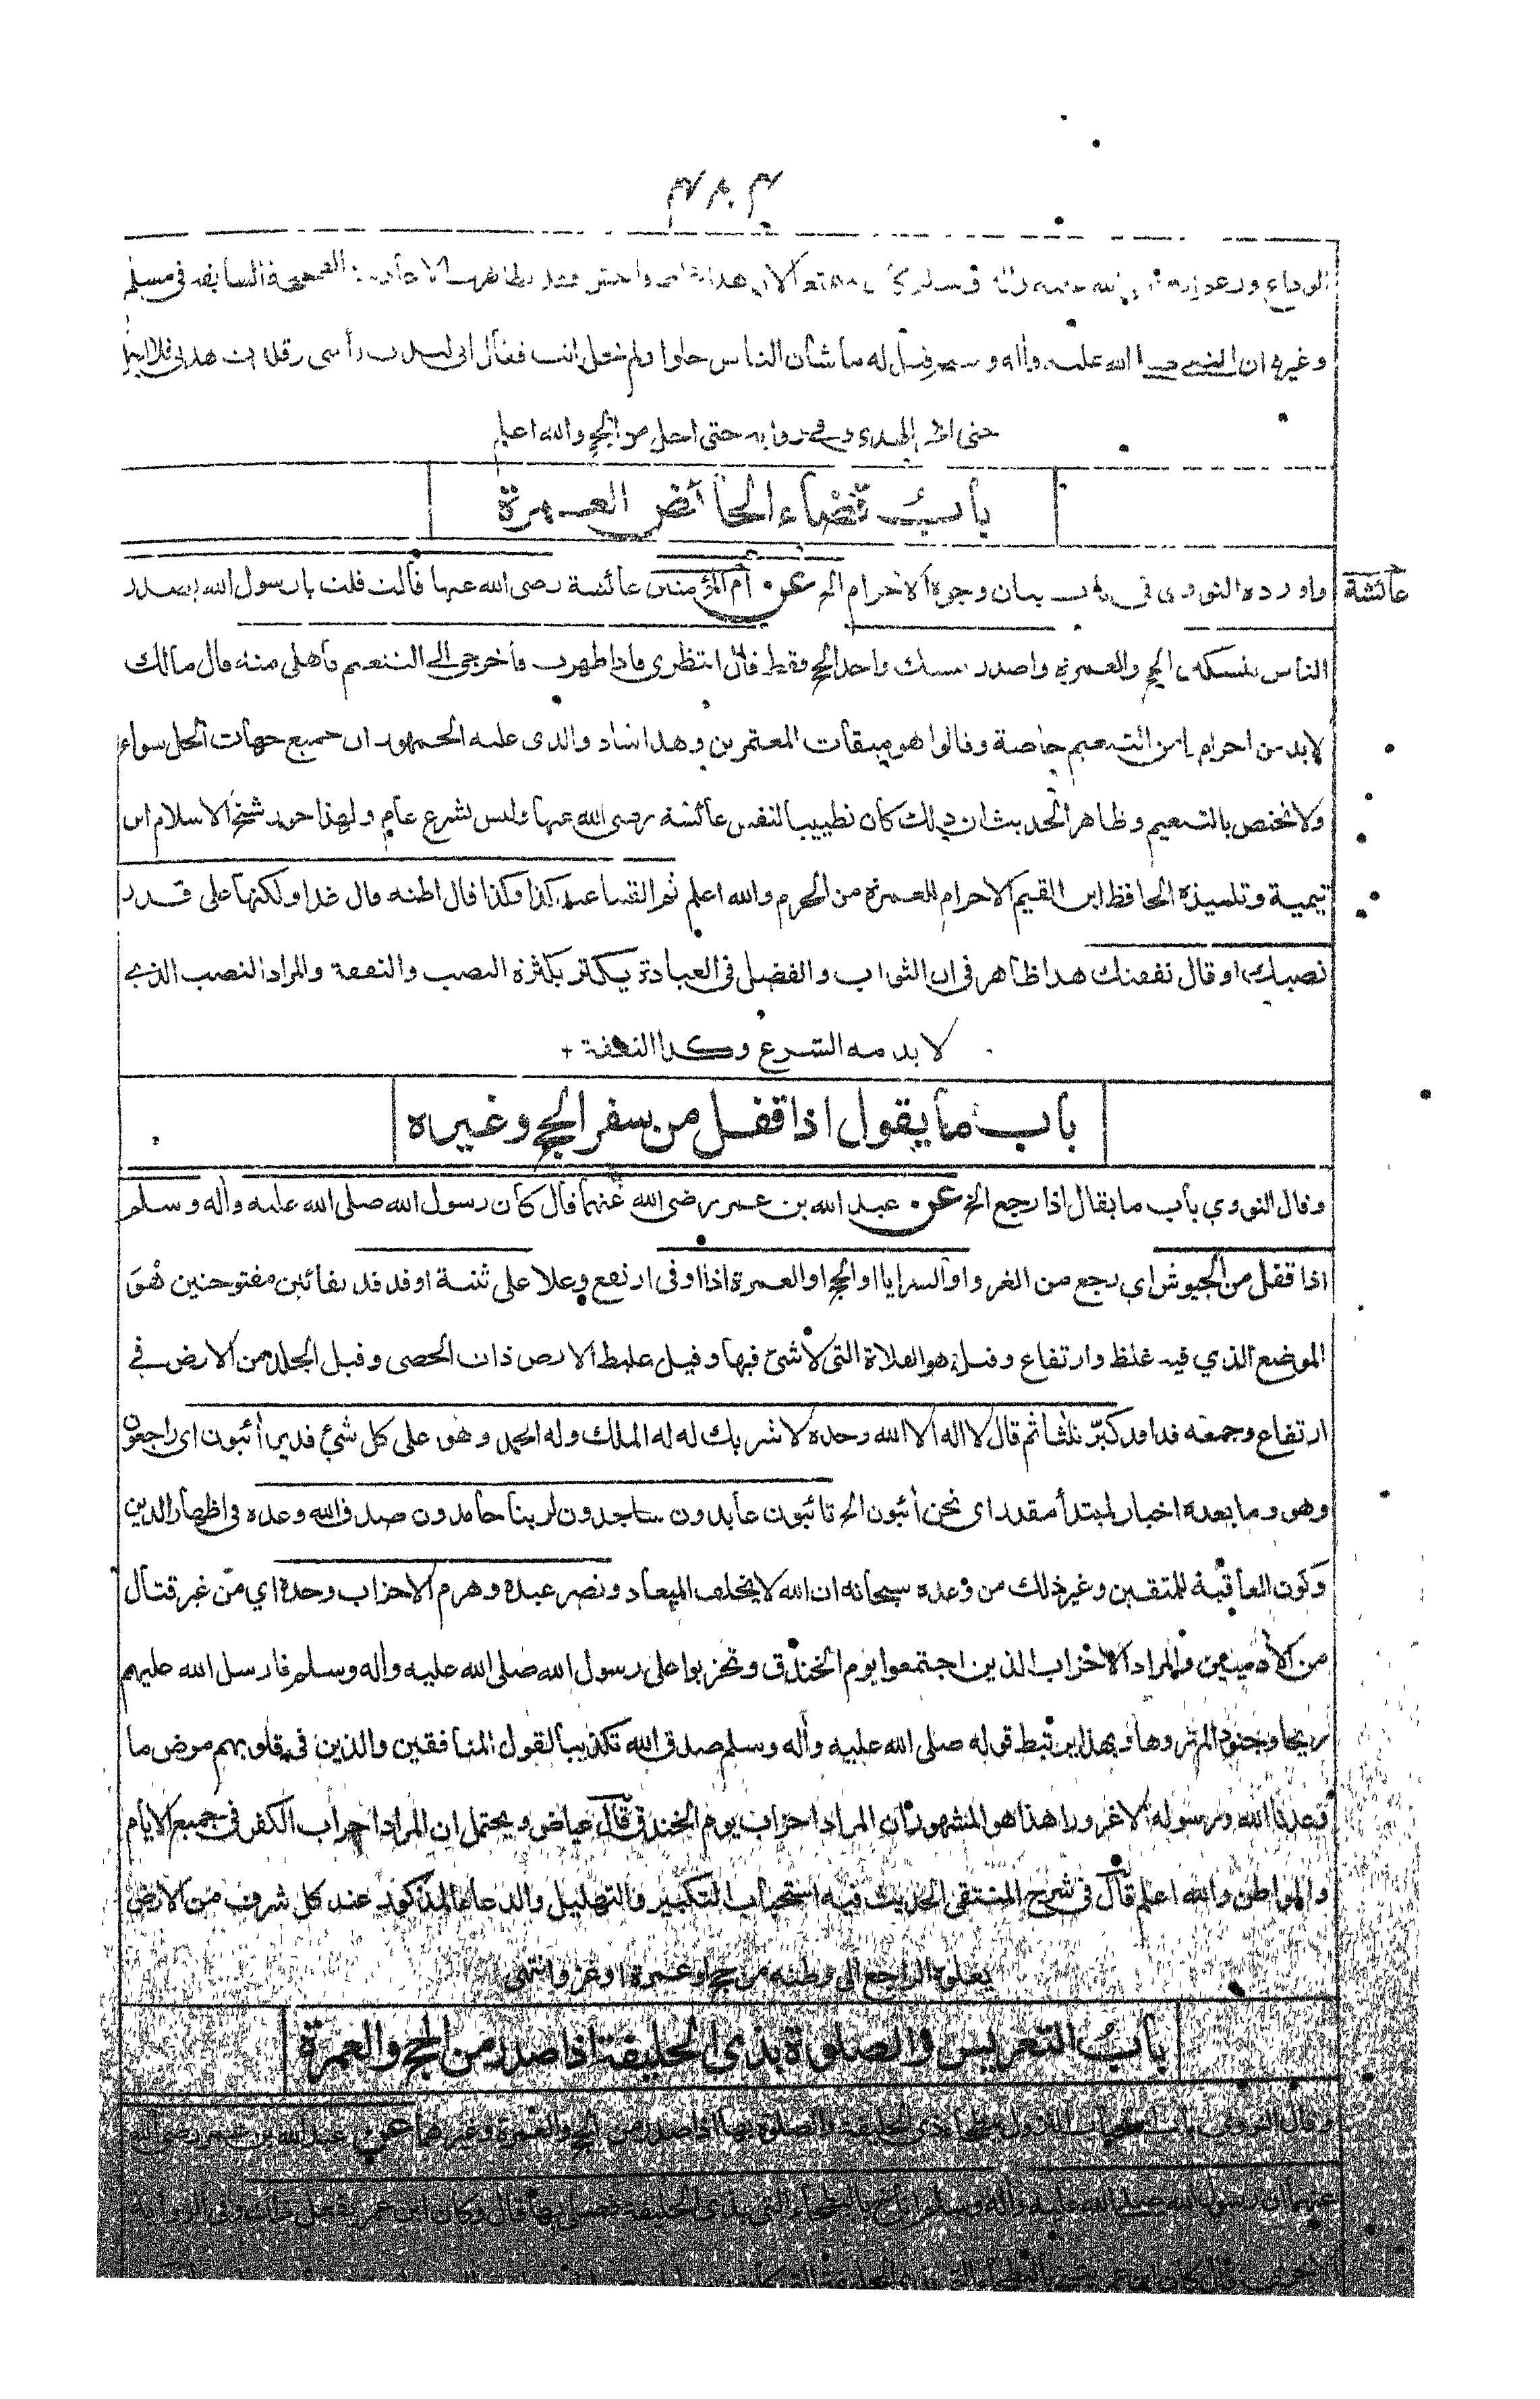 الوداع وزعم انه صلى الله عليه وآله وسلم كان متمتعا لان هذا واحتج بظاهر الاحاديث الصحيحة السابقة فى مسلم
وغيره ان النبى صلى الله عليه وآله وسلم قيل له ما شأن الناس حلوا ولم تحل انت فقال انى لبدت رأسى وقلدت هديى فلا احل
حتى انحر الهدى وفى رواية حتى احل من الحج والله اعلم
بابُ قضاء الحائض العمرة
عائشة
واورده النووى فى باب بيان وجوه الاحرام الخ عن أم المؤمنين عائشة رضى الله عنها قالت قلت يا رسول الله يصدر
الناس بنسكين الحج والعمرة واصدر بنسك واحد الحج فقط قال انتظرى فاذا طهرت فأخرجى الى التنعيم فأهلى منه قال مالك
لابد من احرامه من التنعيم خاصة وقالوا هو ميقات المعتمرين وهذا شاذ والذى عليه الجمهور ان جميع جهات الحل سواء
ولا تختص بالتنعيم وظاهر الحديث ان ذلك كان تطييبا لنفس عائشة رضى الله عنها وليس لشرع عام ولهذا جوز شيخ الاسلام ابن
تيمية وتلميذه الحافظ ابن القيم الاحرام للعمرة من الحرم والله اعلم ثم القينا عند كذا وكذا قال اظنه قال غدا ولكنها على قدر
نصبك او قال نفقتك هذا ظاهر فى ان الثواب والفضل فى العبادة يكثر بكثرة النصب والنفقة والمراد النصب الذى
لا يذمه الشرع وكذا النفقة +
باب ما يقول اذا قفل من سفر الحج وغيره
وقال النووي باب ما يقال اذا رجع الخ عن عبد الله بن عمر رضى الله عنهما قال كان رسول الله صلى الله عليه وآله وسلم
اذا قفل من الجيوش اي رجع من الغزو او السرايا او الحج او العمرة اذا اوفى ارتفع وعلا على ثنية او فدفد بفائين مفتوحتين هُوَ
الموضع الذي فيه غلظ وارتفاع وقيل هو الفلاة التى لا شئ فيها وقيل غليظ الارض ذات الحصى وقيل الجلد من الارض فى
ارتفاع وجمعه فدافد كبّر ثلثا ثم قال لا اله الا الله وحده لا شريك له له الملك وله الحمد وهو على كل شئ قدير آئبون اى راجعون
وهو وما بعده اخبار لمبتدأ مقدر اى نحن آئبون الخ تائبون عابدون ساجدون لربنا حامدون صدق الله وعده فى اظهار الدين
وكون العاقبة للمتقين وغير ذلك من وعده سبحانه ان الله لا يخلف الميعاد ونصر عبده وهزم الاحزاب وحده اي من غير قتال
من الآدميين والمراد الاحزاب الذين اجتمعوا يوم الخندق وتحزبوا على رسول الله صلى الله عليه وآله وسلم فارسل الله عليهم
ريحا وجنودا لم تروها وبهذا يرتبط قوله صلى الله عليه وآله وسلم صدق الله تكذيبا لقول المنافقين والذين فى قلوبهم مرض ما
وعدنا الله ورسوله الا غرورا هذا هو المشهور ان المراد احزاب يوم الخندق قال عياض ويحتمل ان المراد احزاب الكفر فى جميع الايام
والمواطن والله اعلم قال فى شرح المنتقى الحديث فيه استحباب التكبير والتهليل والدعاء المذكور عند كل شرف من الارض
يعلوه الراجع الى وطنه من حج او عمرة او غزو انتهى
بابُ التعريس والصلوة بذى الحليفة اذا صدر من الحج والعمرة
وقال النووى باب استحباب النزول ببطحاء ذى الحليفة والصلوة بها اذا صدر من الحج والعمرة وغيرهما عن عبد الله بن عمر رضى الله
عنهما ان رسول الله صلى الله عليه وآله وسلم اناخ بالبطحاء التى بذى الحليفة فصلى بها قال وكان ابن عمر يفعل ذلك وفى الرواية
الاخرى قال كان ابن عمر ينيخ بالبطحاء التى بذى الحليفة التى كان